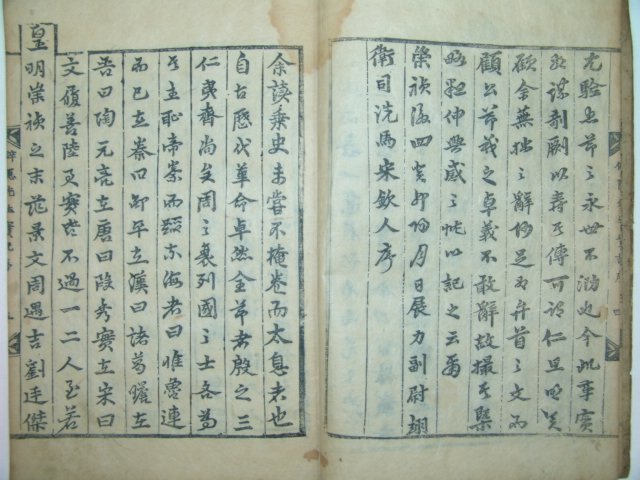 尤驗忠節之永世不泯也今此事實
謀剞劂以壽其傳可謂仁且明矣
顧余蕪拙之辭何足爲弁首之文而
顧公節義之卓義不敢辭故撮其槩
略仲興感之忱以記之云爾
崇禎後四癸卯陽月日展力副尉翊
衛司洗馬宋欽人序
余讀乘史未嘗不掩卷而太息者也
自古歷代革命卓然全節者殷之三
仁夷齊尚矣周之衰列國之士各爲
其主耻帝秦而蹈東海者曰惟魯連
而已在秦曰邵平在漢曰諸葛瞻在
晉曰陶元亮在唐曰段秀實在宋曰
文履善陸君實皆不過一二人至若
皇明崇禎之末范景文周遇吉劉廷傑